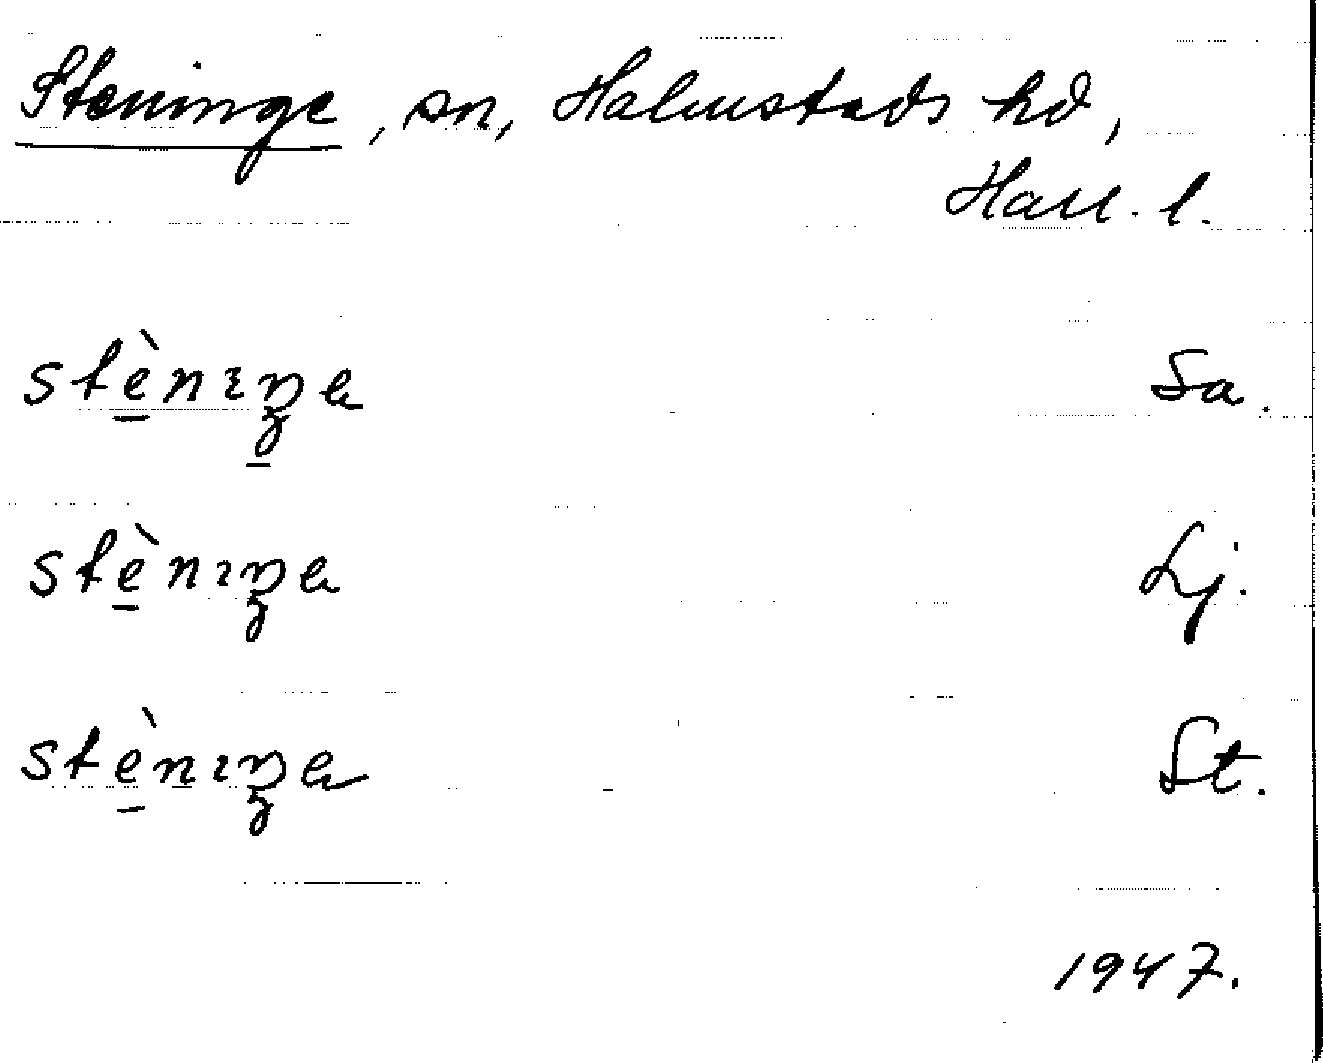 Steninge, sn, Halmstads hd,
Hall. l.
stè̱nıŋ̱ɐ Sa.
stè̱nıŋɐ Lj.
stè̱nıŋɐ St.
1947.